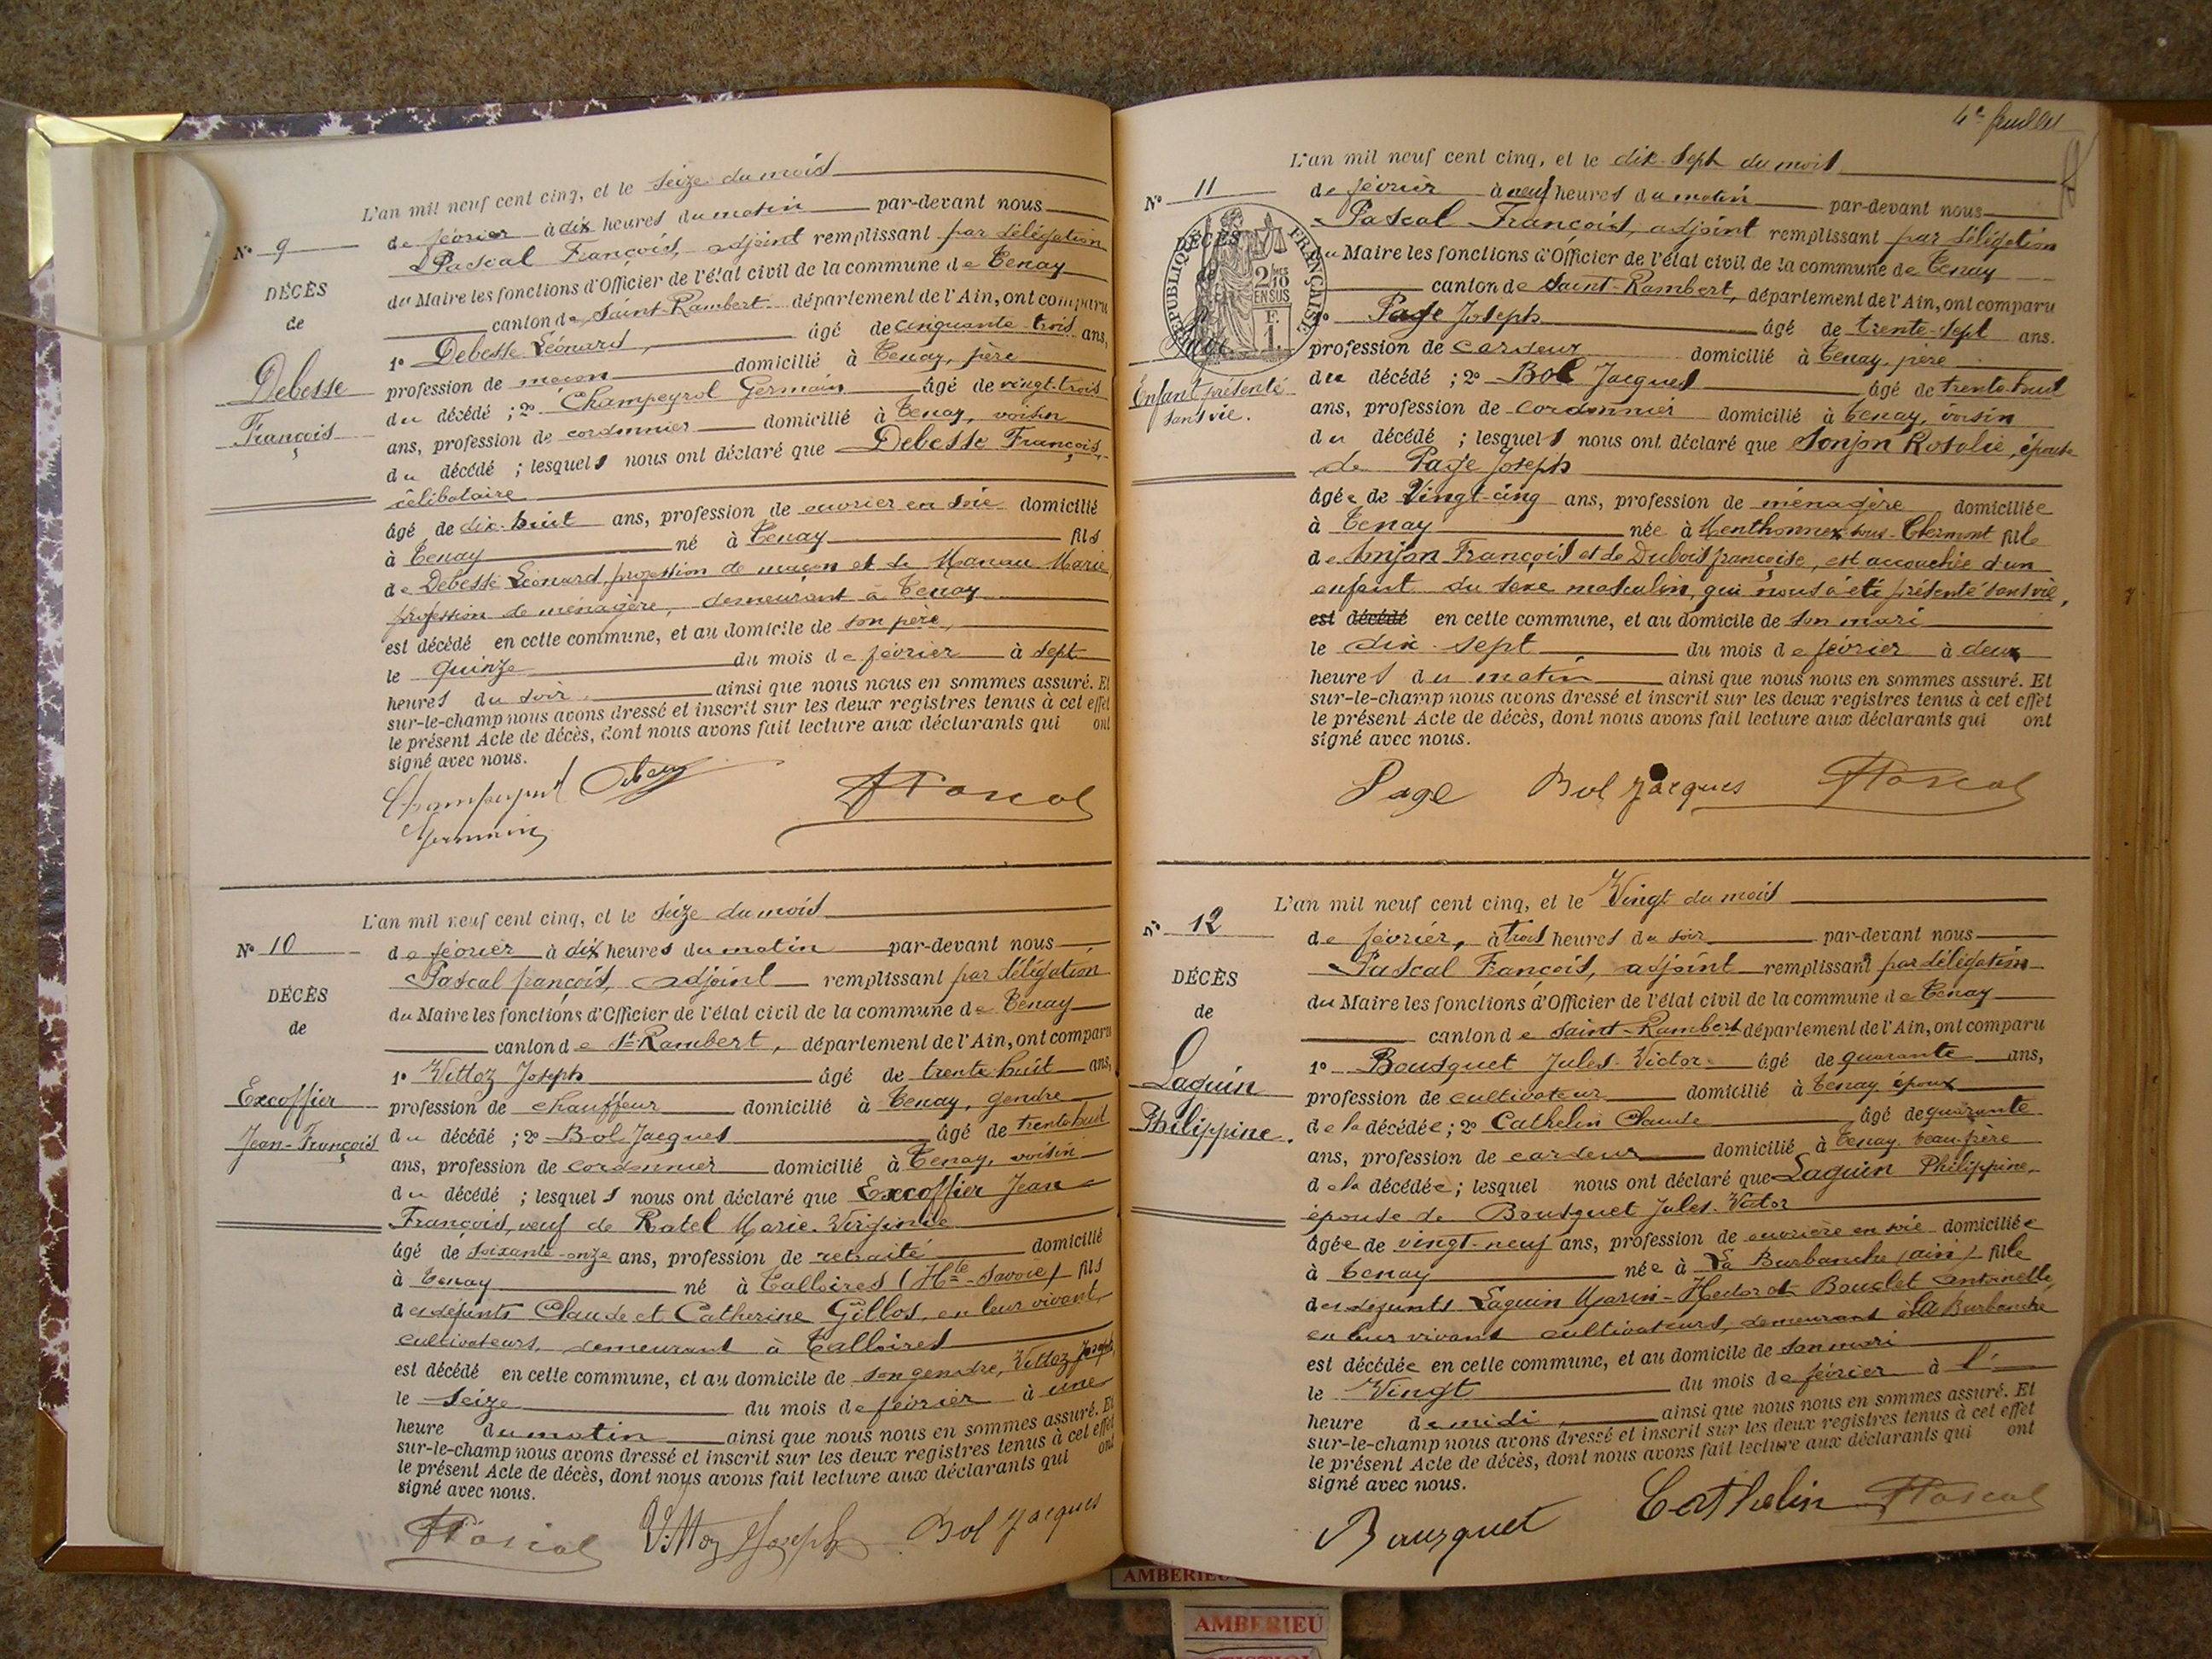 L'an mil neuf cent cinq, et le seize du mois
de février à dix heures du matin par-devant nous
Nº 9
Pascal François, adjoint remplissant par délégation
DÉCÈS
du Maire les fonctions d'Officier de l'état civil de la commune de Tenay
de
canton de Saint-Rambert département de l'Ain, ont comparu
1º Debesse Léonard, âgé de cinquante-trois ans,
Debesse
profession de maçon domicilié à Tenay, père
François
du décédé ; 2º Champeyrol Germain âgé de vingt-trois
ans, profession de cordonnier domicilié à Tenay, voisin
du décédé ; lesquels nous ont déclaré que Debesse François,
célibataire
âgé de dix-huit ans, profession de ouvrier en soie domicilié
à Tenay né à Tenay fils
de Debesse Léonard, profession de maçon et de Manau Marie,
profession de ménagère, demeurant à Tenay
est décédé en cette commune, et au domicile de son père,
le quinze du mois de février à sept
heures du soir ainsi que nous nous en sommes assuré. Et
sur-le-champ nous avons dressé et inscrit sur les deux registres tenus à cet effet
le présent Acte de décès, dont nous avons fait lecture aux déclarants qui ont
signé avec nous.
Germain
FPascal
L'an mil neuf cent cinq, et le seize du mois
Nº 10
de février à dix heures du matin par-devant nous
Pascal françois, adjoint remplissant par délégation
DÉCÈS
du Maire les fonctions d'Officier de l'état civil de la commune de Tenay
de
canton de St-Rambert, département de l'Ain, ont comparu
1º Vittoz Joseph âgé de trente-huit ans,
Excoffier
profession de chauffeur domicilié à Tenay, gendre
Jean-François
du décédé ; 2º Bol Jacques âgé de trente-huit
ans, profession de cordonnier domicilié à Tenay, voisin
du décédé ; lesquels nous ont déclaré que Excoffier Jean
François, veuf de Ratel Marie-Virginie
âgé de soixante-onze ans, profession de retraité domicilié
à Tenay né à Talloires (Hte-Savoie) fils
des défunts Claude et Catherine Gillos, en leur vivant
cultivateurs, demeurant à Talloires
est décédé en cette commune, et au domicile de son gendre, Vittoz Joseph,
le seize du mois de février à une
heure du matin ainsi que nous nous en sommes assuré. Et
sur-le-champ nous avons dressé et inscrit sur les deux registres tenus à cet effet
le présent Acte de décès, dont nous avons fait lecture aux déclarants qui ont
signé avec nous.
FPascal Vittoz Joseph Bol Jacques
4e feuillet
L'an mil neuf cent cinq, et le dix-sept du mois
Nº 11
de février à neuf heures du matin par-devant nous
Pascal François, adjoint remplissant par délégation
DÉCÈS
RÉPUBLIQUE FRANÇAISE
2/10 EN SUS
F. 1.
du Maire les fonctions d'Officier de l'état civil de la commune de Tenay
de
canton de Saint-Rambert, département de l'Ain, ont comparu
1º Page Joseph âgé de trente-sept ans.
Page
profession de cardeur domicilié à Tenay, père
Enfant présenté
sans vie.
du décédé ; 2º Bol Jacques âgé de trente-huit
ans, profession de cordonnier domicilié à Tenay, voisin
du décédé ; lesquels nous ont déclaré que Sonjon Rosalie, épouse
de Page Joseph
âgée de Vingt-cinq ans, profession de ménagère domiciliée
à Tenay née à Menthonnex-sous-Clermont fille
de Sonjon François et de Dubois françoise, est accouchée d'un
enfant du sexe masculin, qui nous a été présenté sans vie,
est décédé en cette commune, et au domicile de son mari
le dix-sept du mois de février à deux
heures du matin ainsi que nous nous en sommes assuré. Et
sur-le-champ nous avons dressé et inscrit sur les deux registres tenus à cet effet
le présent Acte de décès, dont nous avons fait lecture aux déclarants qui ont
signé avec nous.
Page Bol Jacques FPascal
L'an mil neuf cent cinq, et le Vingt du mois
Nº 12
de février, à trois heures du soir par-devant nous
Pascal François, adjoint remplissant par délégation
DÉCÈS
du Maire les fonctions d'Officier de l'état civil de la commune de Tenay
de
canton de Saint-Rambert département de l'Ain, ont comparu
1º Bousquet Jules-Victor âgé de quarante ans,
Laguin
profession de cultivateur domicilié à Tenay époux
Philippine.
de la décédée ; 2º Cathelin Claude âgé de quarante
ans, profession de cardeur domicilié à Tenay beau-frère
de la décédée ; lesquel nous ont déclaré que Laguin Philippine
épouse de Bousquet Jules-Victor
âgée de vingt-neuf ans, profession de ouvrière en soie domiciliée
à Tenay née à La Burbanche (ain) fille
des défunts Laguin Marin-Hector et Bouclet Antoinette,
en leur vivant cultivateurs, demeurant à La Burbanche
est décédée en cette commune, et au domicile de son mari
le Vingt du mois de février à l'
heure de midi, ainsi que nous nous en sommes assuré. Et
sur-le-champ nous avons dressé et inscrit sur les deux registres tenus à cet effet
le présent Acte de décès, dont nous avons fait lecture aux déclarants qui ont
signé avec nous.
Bousquet Cathelin FPascal
AMBERIEU
AMBERIEU